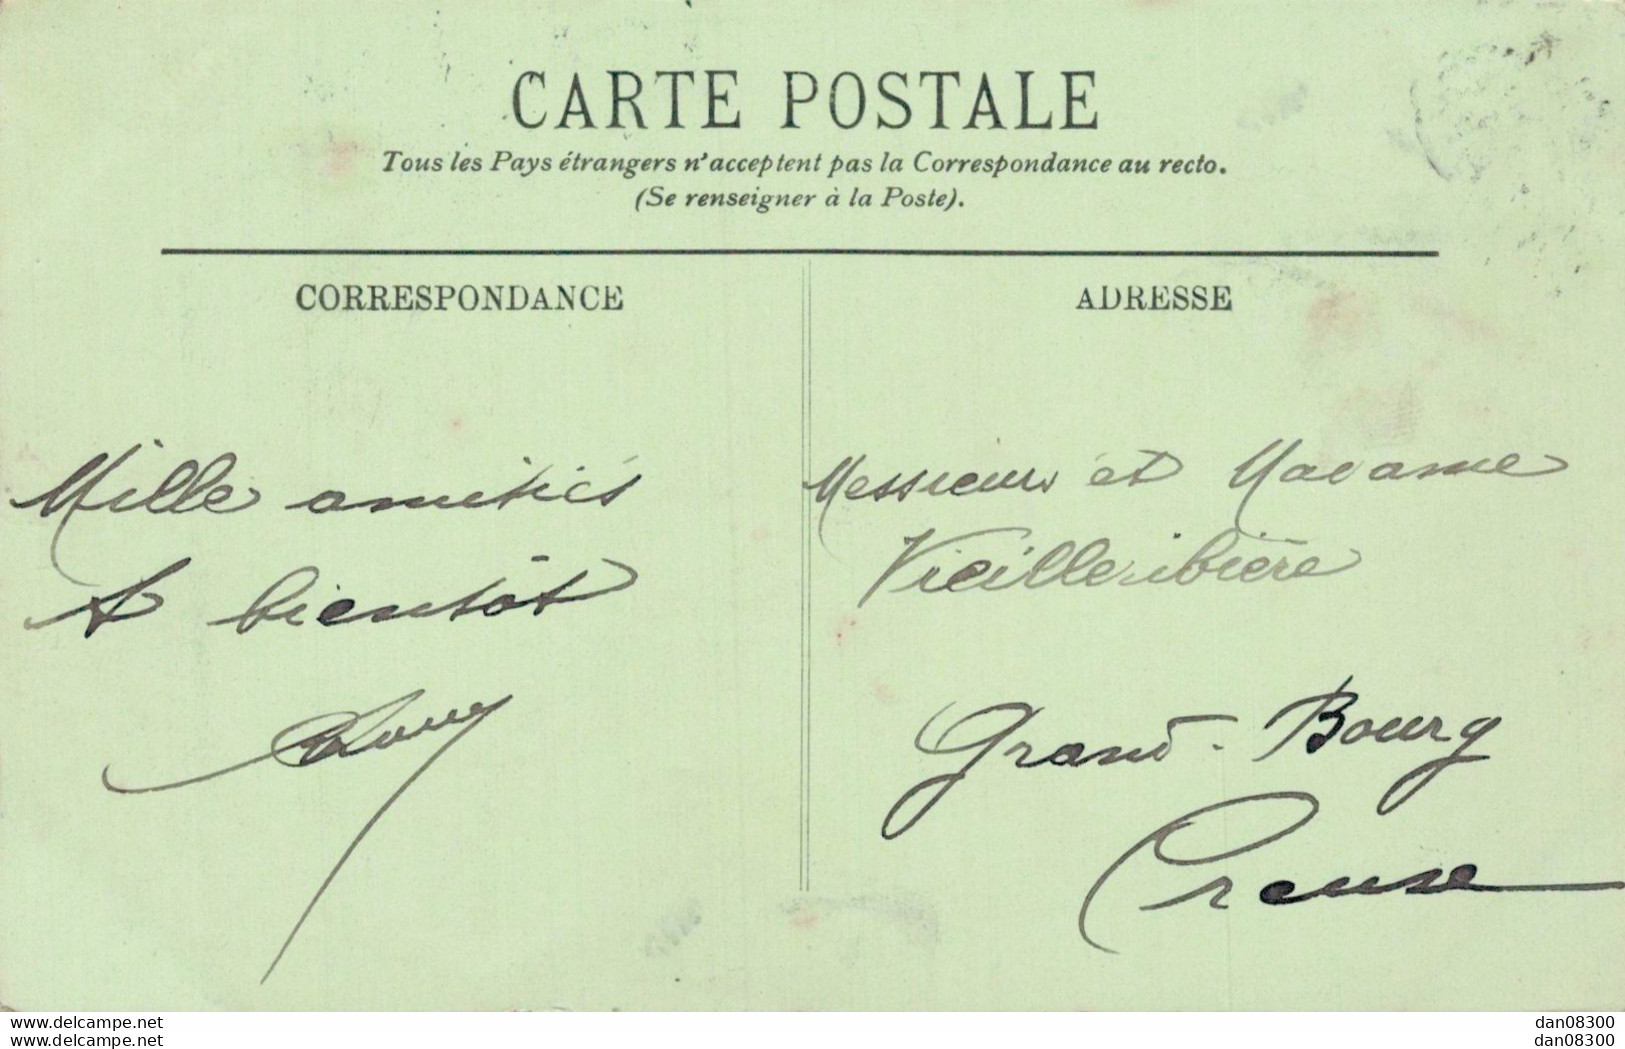 CARTE POSTALE
Tous les Pays étrangers n'acceptent pas la Correspondance au recto.
(Se renseigner à la Poste).
CORRESPONDANCE
Mille amitiés
A bientôt
ADRESSE
Messieurs et Madame
Vieilleribière
Grand-Bourg
Creuse
www.delcampe.net
www.delcampe.net
dan08300
dan08300